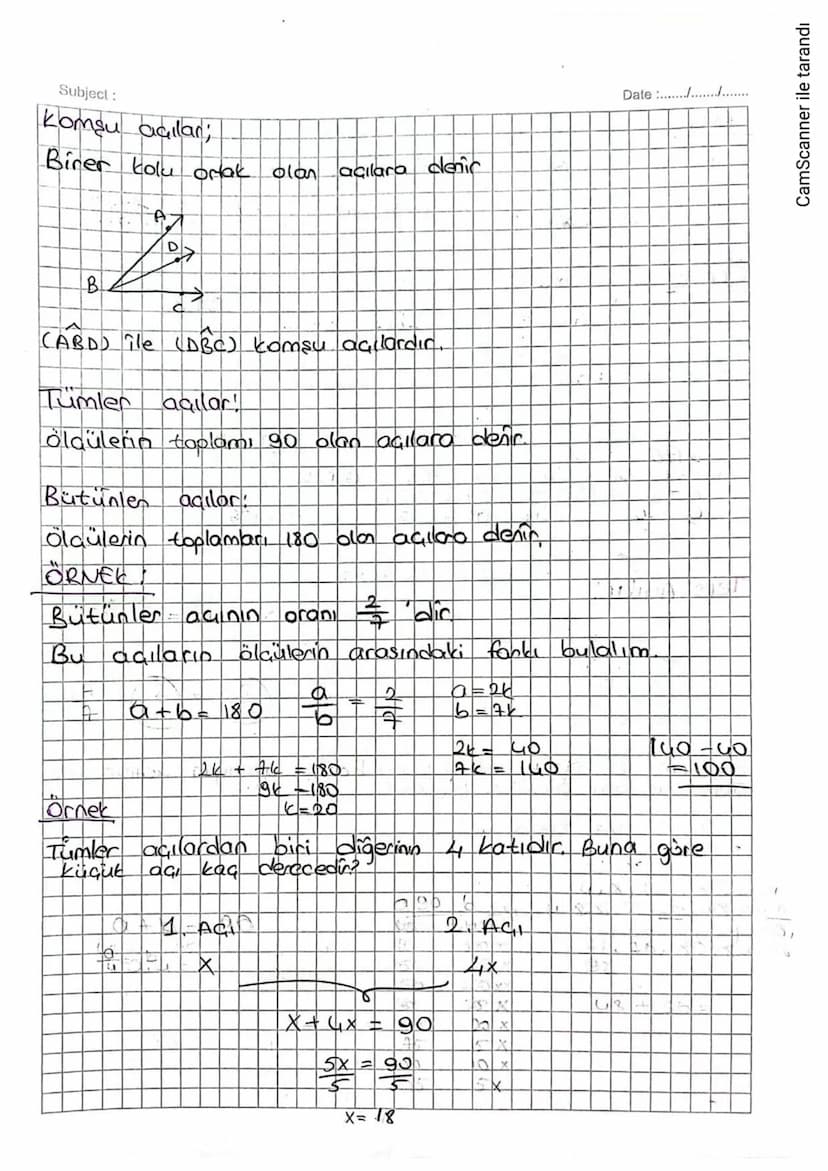 CamScanner ile tarandı
Subject :
Date :......./......./.......
Komşu açılar;
Birer kolu ortak olan açılara denir
A
D
B
C
(AB̂D) ile (DB̂C) komşu açılardır.
Tümler açılar!
ölçülerin toplamı 90 olan açılara denir.
Bütünler açılar:
ölçülerin toplamları 180 olan açılara denir.
ÖRNEK:
Bütünler açının oranı 2/7 'dir.
Bu açıların ölçülerin arasındaki farkı bulalım.
a+b = 180 a/b = 2/7 a=2k
b=7k
2k = 40 140-40
2k + 7k = 180 7k = 140 =100
9k = 180
k=20
Örnek
Tümler açılardan biri diğerinin 4 katıdır. Buna göre
küçük açı kaç derecedir?
1. Açı 2. Açı
x 4x
x + 4x = 90
5x/5 = 90/5
x= 18